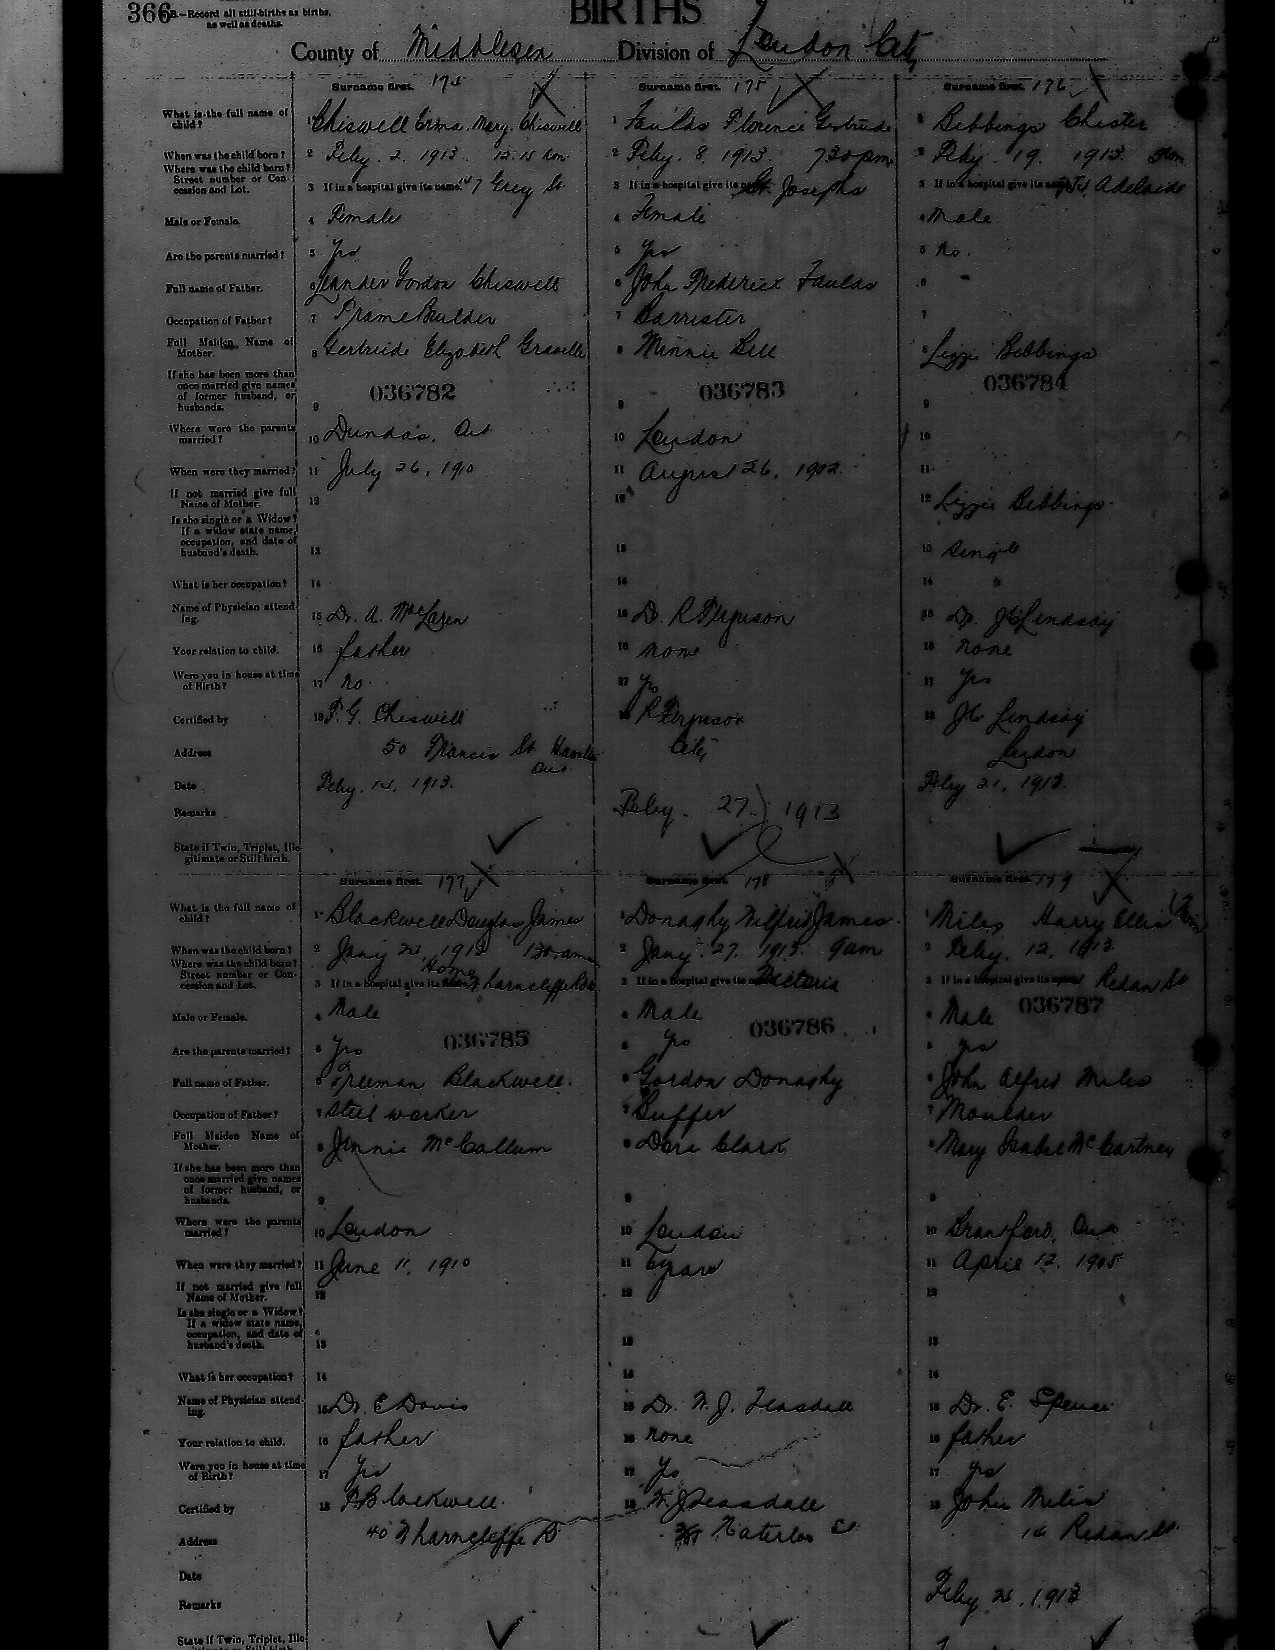 366 B.—Record all still-births as births,
as well as deaths.
BIRTHS
County of Middlesex Division of London City
Surname first. 174 Surname first. 175 Surname first. 176
What is the full name of child? 1 Chiswell Erma Mary Chiswell 1 Faulds Florence Gertrude 1 Bebbings Chester
When was the child born? 2 Feby. 2. 1913 12.15 2 Feby. 8. 1913. 730 pm 2 Feby. 19. 1913
Where was the child born? Street number or Concession and Lot. 3 If in a hospital give its name. 47 Grey St 3 If in a hospital give its St. Josephs 3 If in a hospital give its Adelaide
Male or Female. 4 Female 4 Female 4 Male
Are the parents married? 5 Yes 5 Yes 5 No.
Full name of Father. 6 Leander Gordon Chiswell 6 John Frederick Faulds 6 -
Occupation of Father? 7 Frame Builder 7 Barrister 7
Full Maiden Name of Mother. 8 Gertrude Elizabeth Gravelle 8 Minnie Bell 8 Lizzie Bebbings
036782 036783 036784
If she has been more than once married give names of former husband, or husbands. 9 9 9
Where were the parents married? 10 Dundas, Ont 10 London 10
When were they married? 11 July 26, 1910 11 August 26, 1902. 11
If not married give full Name of Mother. 12 12 12 Lizzie Bebbings.
Is she single or a Widow? If a widow state name, occupation, and date of husband's death. 13 13 13 Single
What is her occupation? 14 14 14
Name of Physician attending. 15 Dr. A. McLaren 15 Dr. R Ferguson 15 Dr. Lindsay
Your relation to child. 16 father 16 none 16 none
Were you in house at time of Birth? 17 No. 17 Yes 17 Yes
Certified by 18 Chiswell 18 R Ferguson 18 Lindsay
Address 50 Francis St Hamilton Ont. City London
Date Feby. 14. 1913. Feby. 27. 1913 Feby 21, 1913.
Remarks
State if Twin, Triplet, Illegitimate or Still-birth.
Surname first. 177 Surname first. 178 Surname first. 179
What is the full name of child? 1 Blackwell Douglas James 1 Donaghy Wilfred James. 1 Miles Harry Ellis (Twin
When was the child born? 2 Jany 22, 1913 130 am 2 Jany. 27. 1913. 9am 2 Feby. 12. 1913.
Where was the child born? Street number or Concession and Lot. 3 If in a hospital give its name. Home Wharncliffe Rd 3 If in a hospital give its Victoria 3 If in a hospital give its name Redan St
Male or Female. 4 Male 4 Male 4 Male
036785 036786 036787
Are the parents married? 5 Yes 5 Yes 5 Yes
Full name of Father. 6 Freeman Blackwell. 6 Gordon Donaghy 6 John Alfred Miles
Occupation of Father? 7 Steel worker 7 Buffer 7 Moulder
Full Maiden Name of Mother. 8 Jennie McCallum 8 Dora Clark 8 Mary Isabel McCartney
If she has been more than once married give names of former husband, or husbands. 9 9 9
Where were the parents married? 10 London 10 London 10 Brantford, Ont
When were they married? 11 June 11, 1910 11 11 April 12. 1905
If not married give full Name of Mother. 12 12 12
Is she single or a Widow? If a widow state name, occupation, and date of husband's death. 13 13 13
What is her occupation? 14 14 14
Name of Physician attending. 15 Dr. E Davis 15 Dr. W. J. Teasdall 15 Dr. E. Spence
Your relation to child. 16 father 16 none 16 father
Were you in house at time of Birth? 17 Yes 17 Yes 17 Yes
Certified by 18 F Blackwell. 18 W. J Teasdall 18 John Miles
Address 40 Wharncliffe Rd Waterloo St 14 Redan St
Date
Remarks Feby 1913
State if Twin, Triplet, Ille-